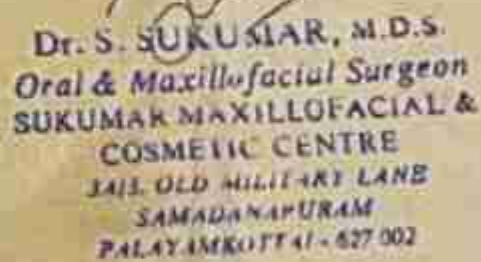 Dr. S. SUKUMAR, M.D.S.
Oral & Maxillofacial Surgeon
SUKUMAR MAXILLOFACIAL &
COSMETIC CENTRE
OLD MILITARY LANE
SAMADANAPURAM
PALAYAMKOTTAI - 627 002